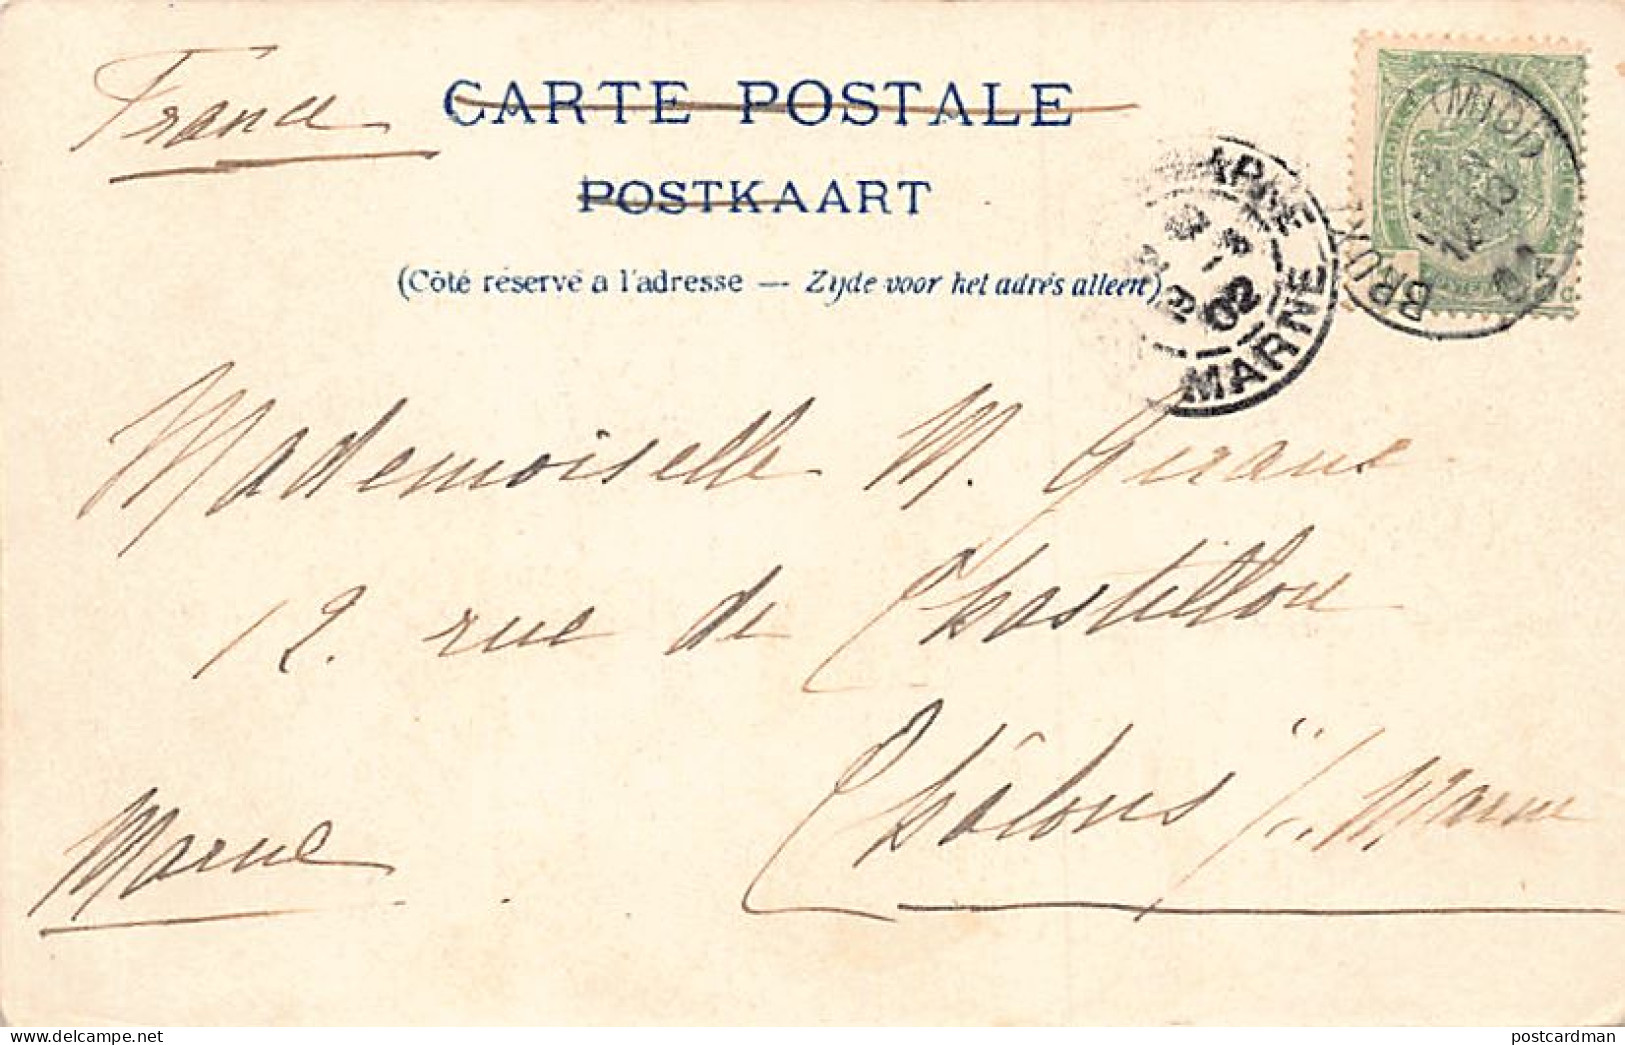 France
CARTE POSTALE
POSTKAART
(Côté réservé a l'adresse — Zijde voor het adrés alleen)
MARNE
02
BRUX MIDI
12-13
5 C
Mademoiselle M.
12. rue de Chastillon
Châlons s/ Marne
Marne
delcampe.net
postcardman